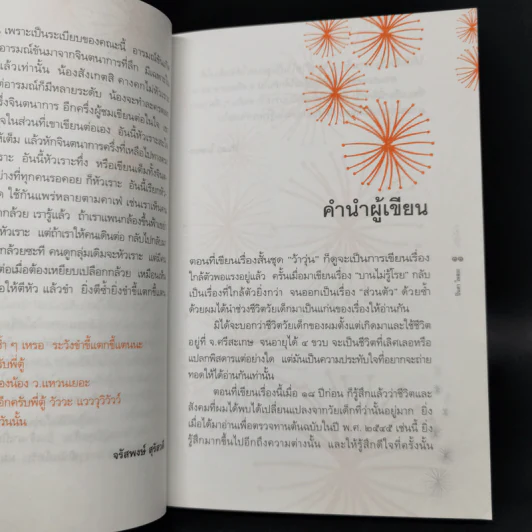 เพราะเป็นระเบียบของคณะนี้ อารมณ์ขัน
อารมณ์ขันมาจากจินตนาการที่ลึก
แล้วเท่านั้น น้องสังเกตสิ คางคกไม่หัวเราะ
อารมณ์ก็มีหลายระดับ น้องจะ
จินตนาการ อีกครึ่งผู้ชมเขียนต่อในใจ
ในส่วนที่เขาเขียนต่อเอง อันนี้หัวเราะ
แล้วหักจินตนาการครึ่งที่เหลือไป
อันนี้หัวเราะทึ่ง หรือเขียนเต็มทั้ง
ที่ทุกคนรอคอย ก็หัวเราะ อันนี้เรียก
ใช้กันแพร่หลายตามคาเฟ่ เช่นเราเห็น
เรารู้แล้ว ถ้าเราแพนกล้องขึ้น
แต่ถ้าเราให้คนเดินต่อ กลับไป
กล้วยซะที คนดูกลุ่มเดิมจะหัวเราะ แต่
ต่อเมื่อต้องเหยียบเปลือกกล้วย เหมือน
ให้ตีหัว แล้วขำ ยิ่งตีซ้ำยิ่งขำขี้แตก
ๆ เหรอ ระวังขำขี้แตกขี้แตนนะ
รับพี่ตู้
ของน้อง ว.แหวนเยอะ
อีกครับพี่ตู้ วัววะ แวววุริวัวว์
วันนั้น
จรัสพงษ์ สุรัสวดี
คำนำผู้เขียน
ตอนที่เขียนเรื่องสั้นชุด “ว้าวุ่น” ก็ดูจะเป็นการเขียนเรื่อง
ใกล้ตัวพอแรงอยู่แล้ว ครั้นเมื่อมาเขียนเรื่อง “บานไม่รู้โรย” กลับ
เป็นเรื่องที่ใกล้ตัวยิ่งกว่า จนออกเป็นเรื่อง “ส่วนตัว” ด้วยซ้ำ
ด้วยผมได้นำช่วงชีวิตวัยเด็กมาเป็นแก่นของเรื่องให้อ่านกัน
มิได้จะบอกว่าชีวิตวัยเด็กของผมตั้งแต่เกิดมาและใช้ชีวิต
อยู่ที่ จ.ศรีสะเกษ จนอายุได้ ๙ ขวบ จะเป็นชีวิตที่เลิศเลอหรือ
แปลกพิสดารแต่อย่างใด แต่มันเป็นความประทับใจที่อยากจะถ่าย
ทอดให้ได้อ่านกันเท่านั้น
ตอนที่เขียนเรื่องนี้เมื่อ ๑๘ ปีก่อน ก็รู้สึกแล้วว่าชีวิตและ
สังคมที่ผมได้พบได้เปลี่ยนแปลงจากวัยเด็กที่ว่านั้นอยู่มาก ยิ่ง
เมื่อได้มาอ่านเพื่อตรวจทานต้นฉบับในปี พ.ศ. ๒๕๔๕ เช่นนี้ ยิ่ง
รู้สึกมากขึ้นไปอีกถึงความต่างนั้น และให้รู้สึกดีใจที่ครั้งนั้น
๑๑